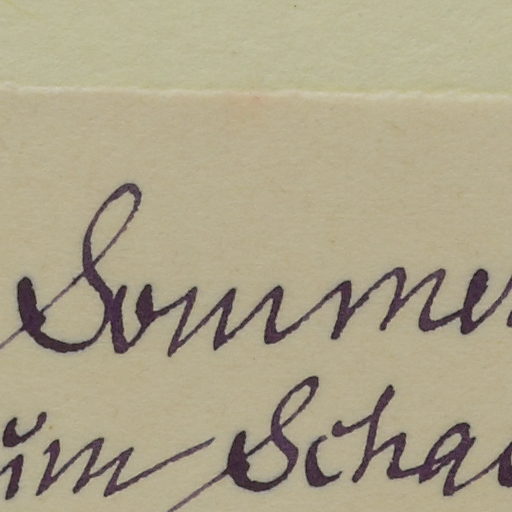 Sommer
um Scha